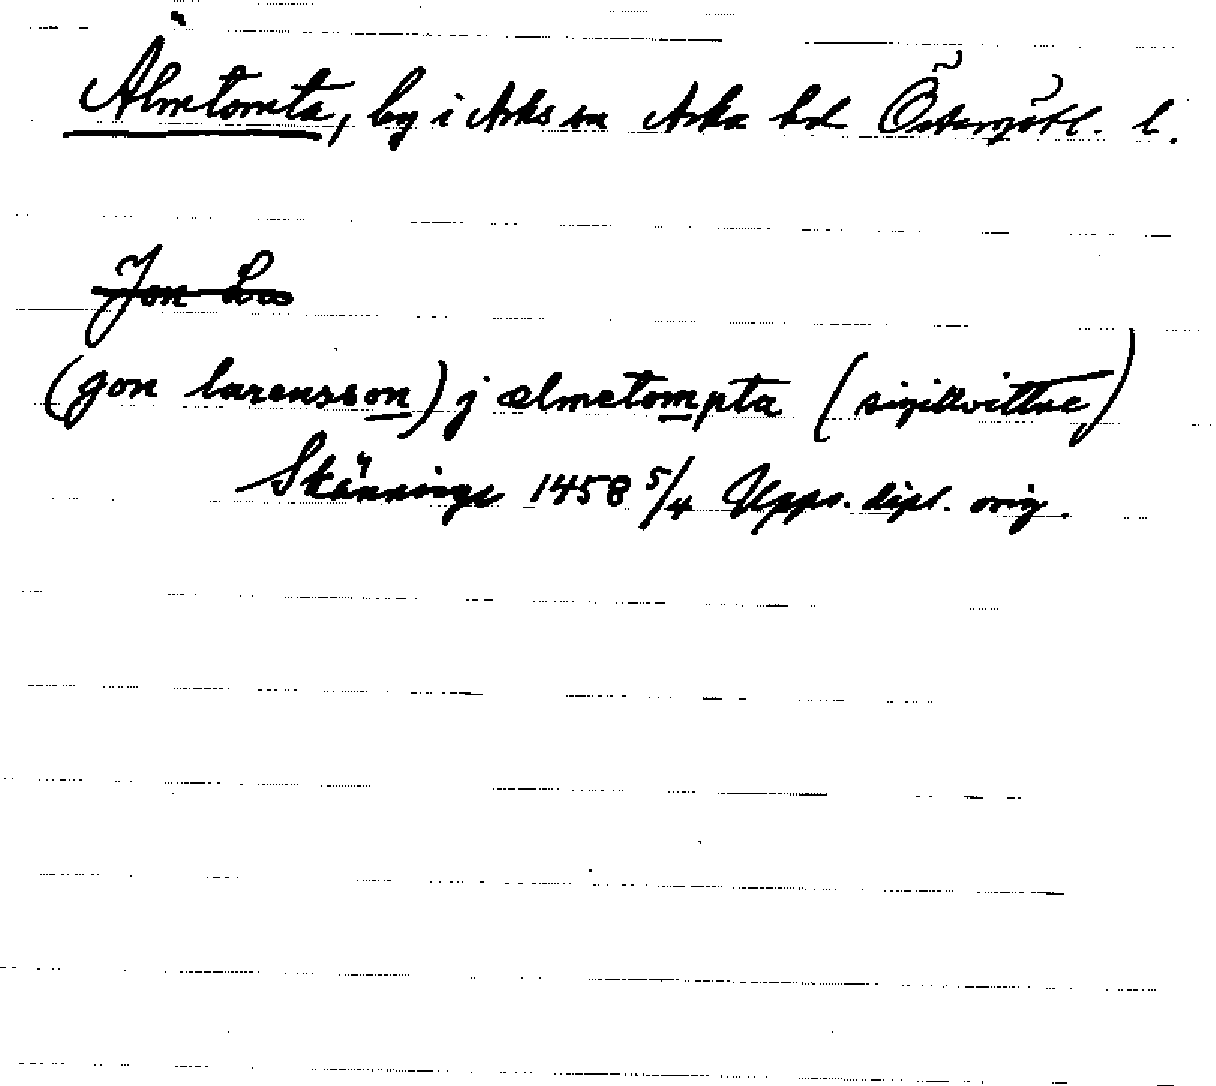 Älmtomta, by i Asks sn Aska hd Östergötl. l.
Jon La
(jon larensson) j ælmetompta (sigillvittne)
Skänninge 1458 5/4 Upps. dipl. orig.